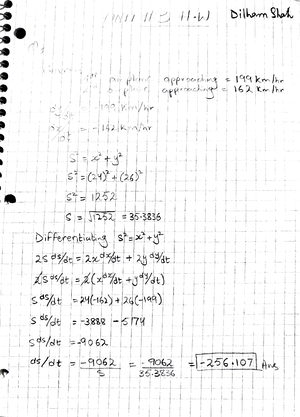 H.W Dilham Shah
air plane approaching = 199 km/hr
air plane approaching = 162 km/hr
dy/dt = -199 km/hr
dx/dt = -162 km/hr
S² = x² + y²
S² = (24)² + (26)²
S² = 1252
S = √1252 = 35.3836
Differentiating S² = x² + y²
2S ds/dt = 2x dx/dt + 2y dy/dt
2S ds/dt = 2(x dx/dt + y dy/dt)
S ds/dt = 24(-162) + 26(-199)
S ds/dt = -3888 - 5174
S ds/dt = -9062
ds/dt = -9062/S = -9062/35.3836 = -256.107 Ans